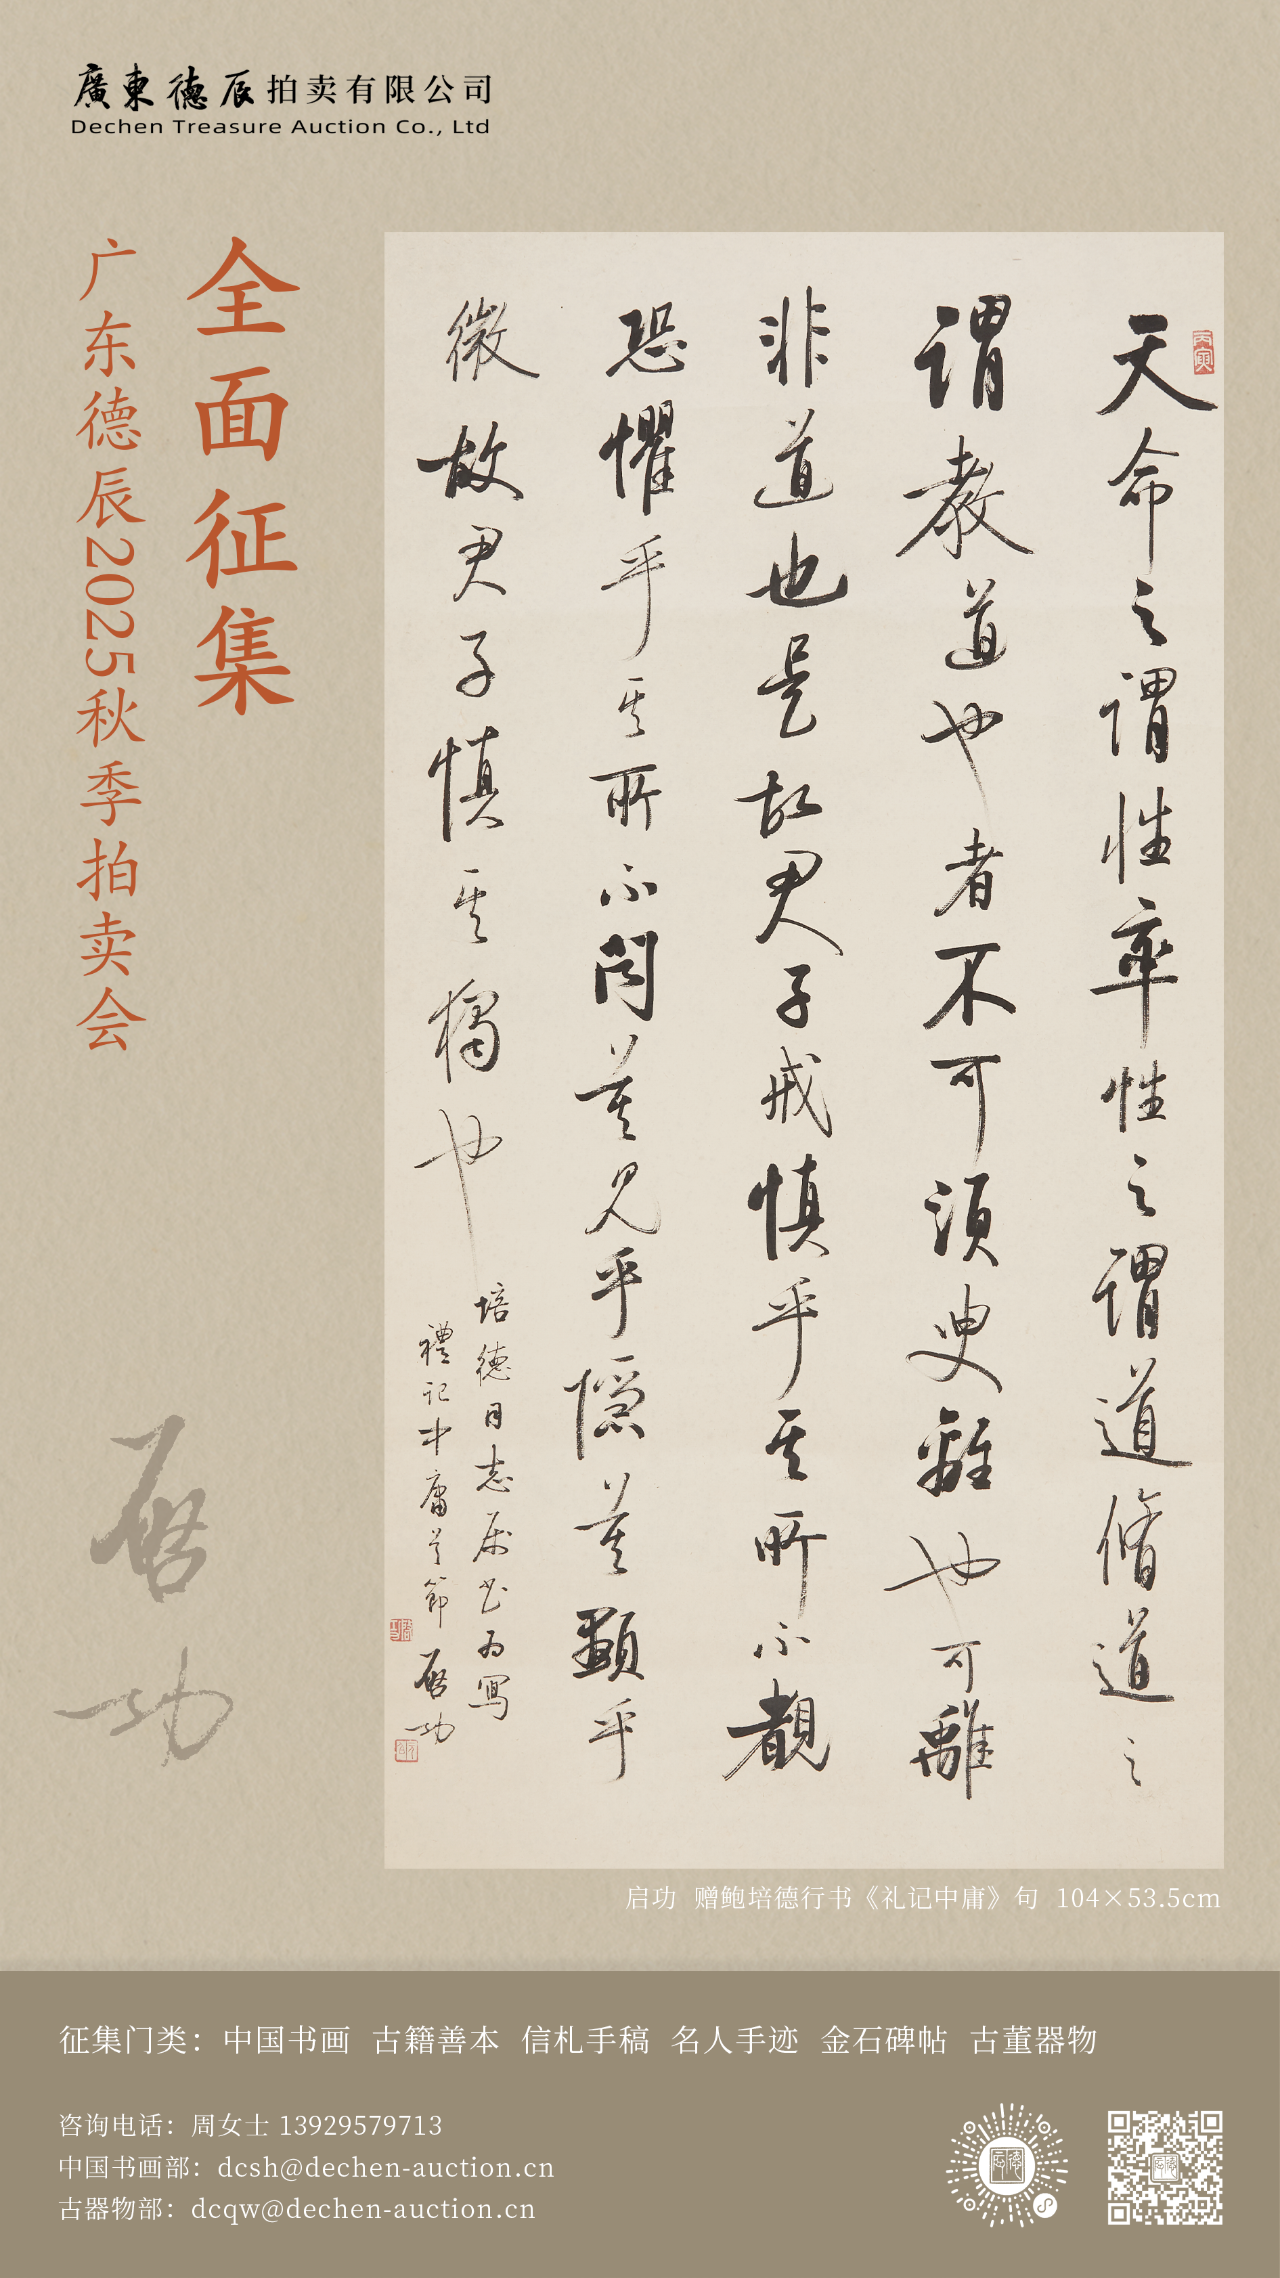 廣東德辰拍卖有限公司
Dechen Treasure Auction Co., Ltd
全面征集
广东德辰2025秋季拍卖会
丙寅
天命之谓性率性之谓道脩道之
谓教道也者不可须叟離也可離
非道也是故君子戒慎乎其所不覩
恐懼乎其所不闻莫见乎隱莫顯乎
微故君子慎其獨也
培德同志属书为写
禮记中庸首節 启功
启功
启功 赠鲍培德行书《礼记中庸》句 104×53.5cm
征集门类：中国书画 古籍善本 信札手稿 名人手迹 金石碑帖 古董器物
咨询电话：周女士 13929579713
中国书画部：dcsh@dechen-auction.cn
古器物部：dcqw@dechen-auction.cn